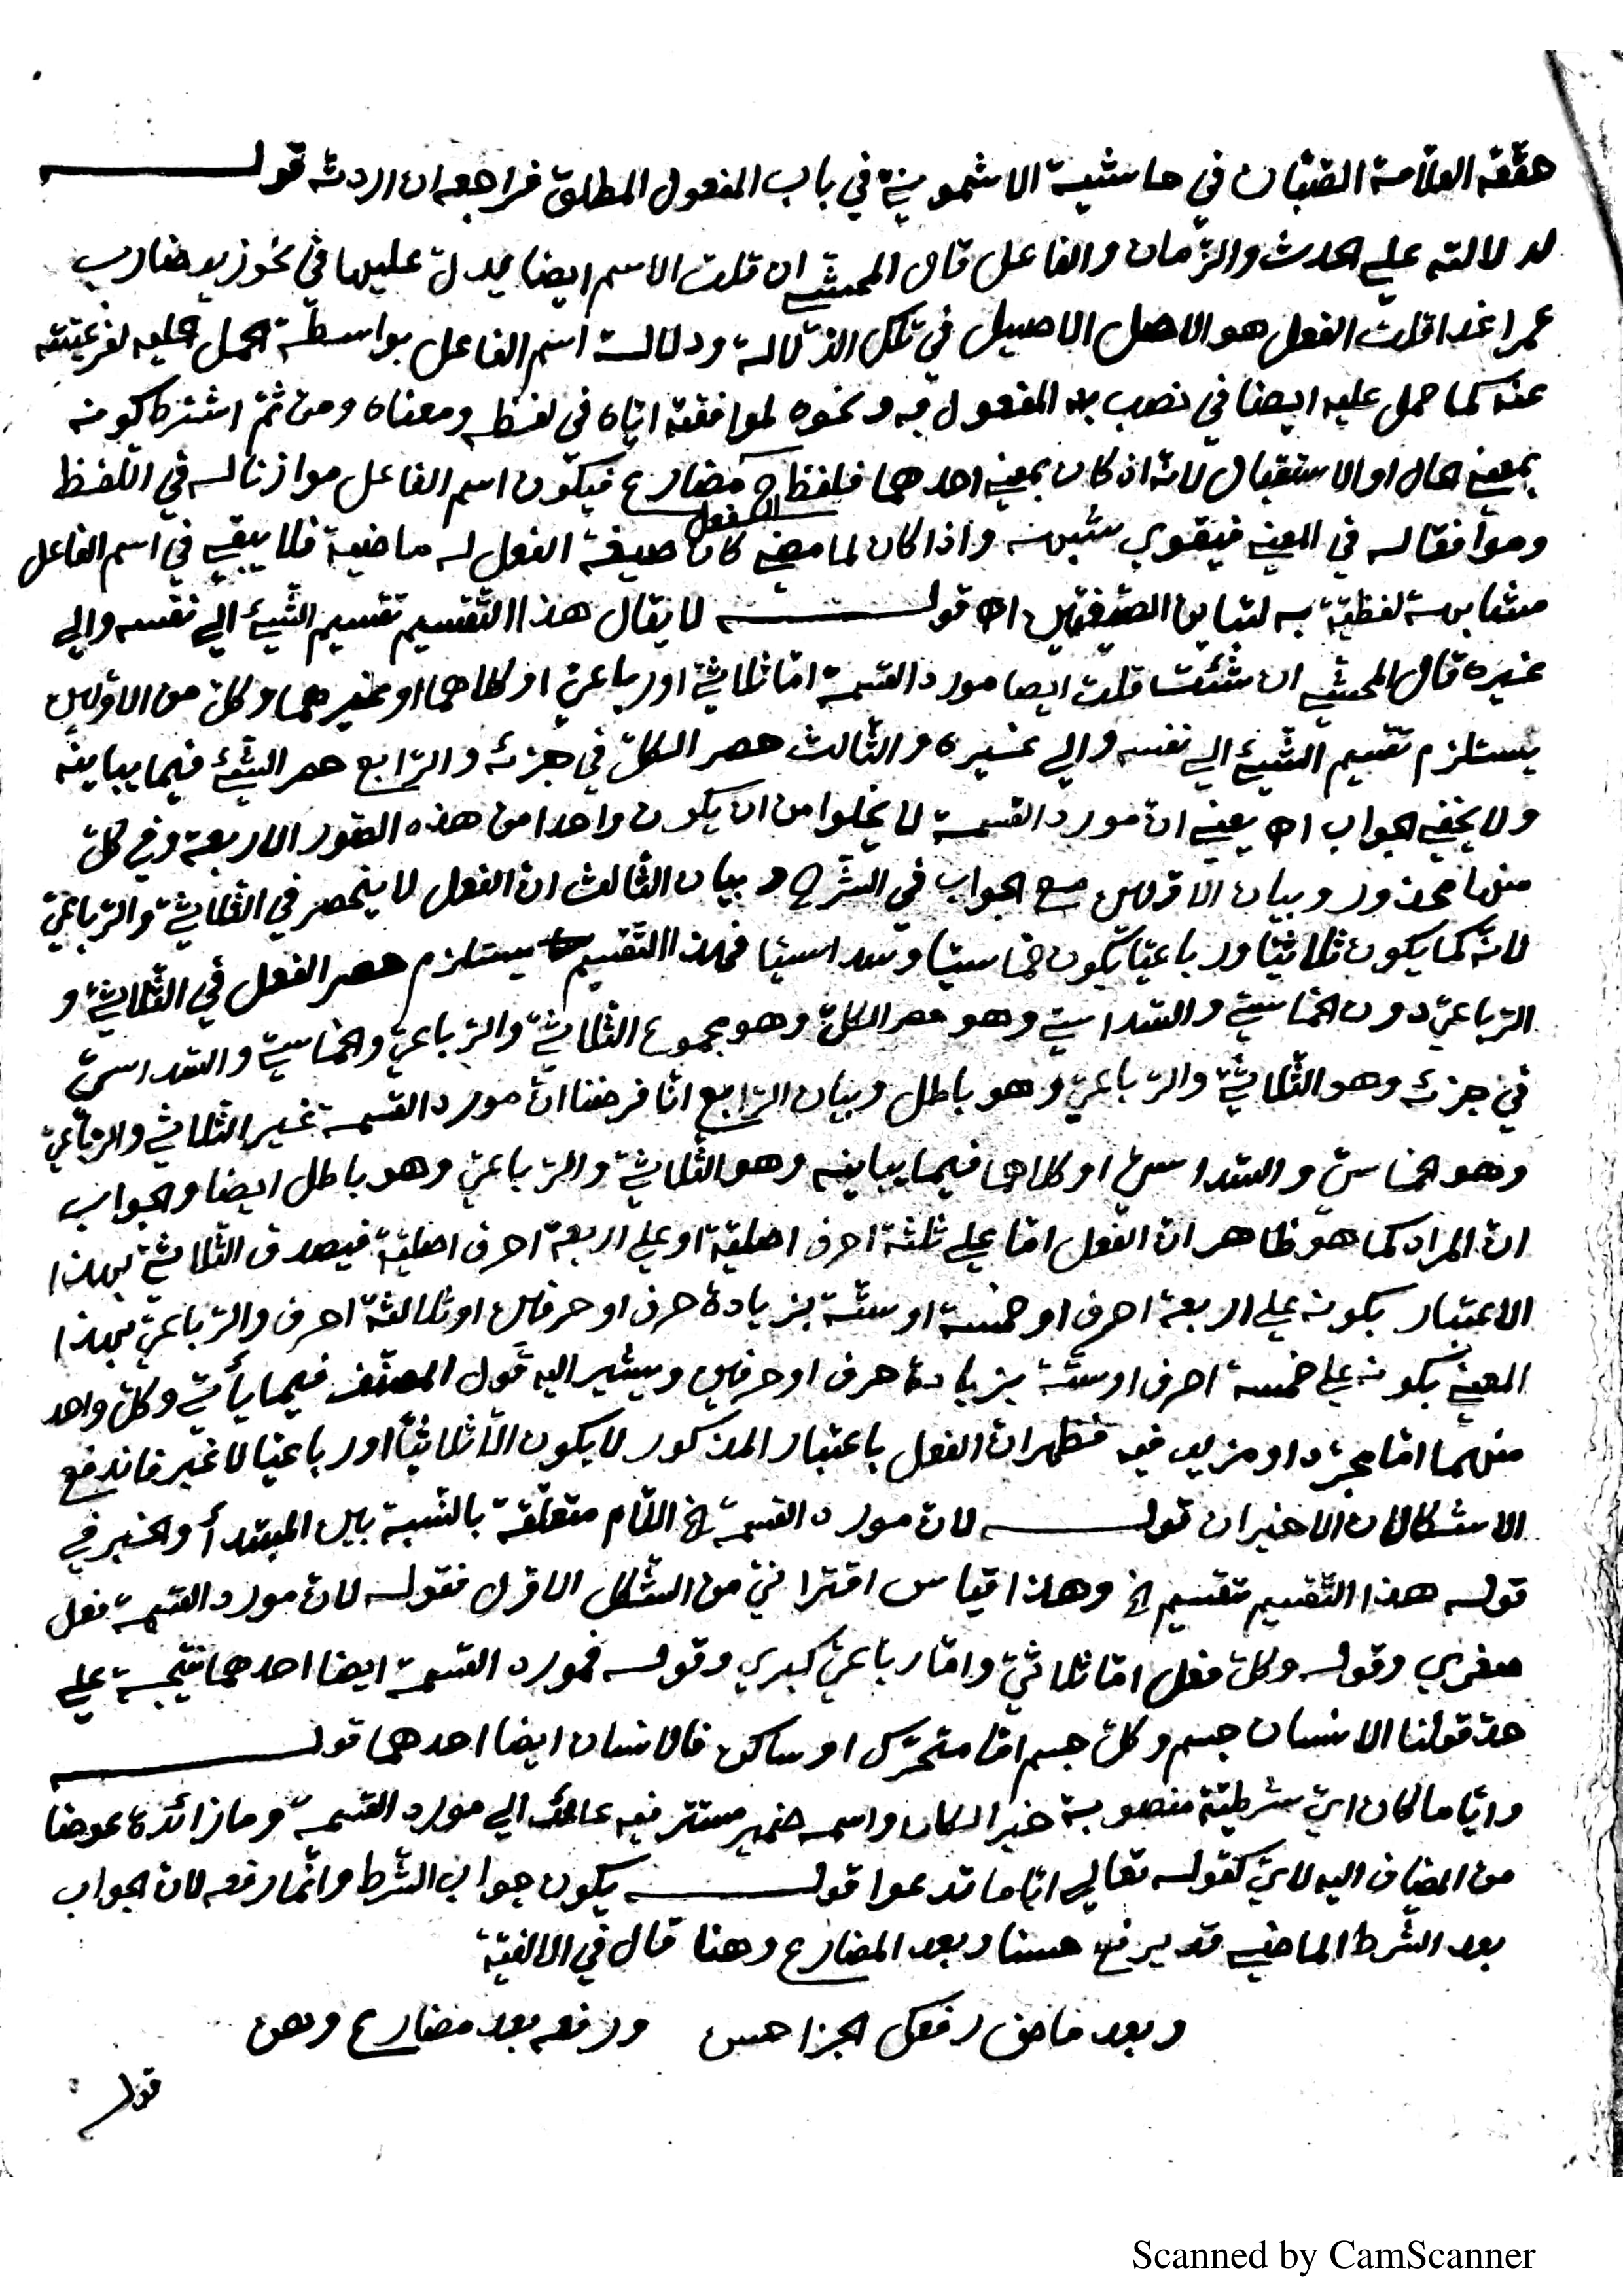 حققه العلامة الصبان في حاشية الاشمونية في باب المفعول المطلق فراجعه ان اردته قوله
لدلالته علي الحدث والزمان والفاعل قال المحشي ان قلت الاسم ايضا يدل عليها في نحو زيد ضارب
عمرا غدا قلت الفعل هو الاصل الاصيل في تلك الدلالة ودلالة اسم الفاعل بواسطة الحمل عليه لفرعيته
عنه كما حمل عليه ايضا في نصب المفعول به ونحوه لموافقة اياه في لفظه ومعناه ومن ثم اشترط كونه
بمعني الحال او الاستقبال لانه اذ كان بمعني احدهما فلفظ الفعل ح مضارع فيكون اسم الفاعل موازنا له في اللفظ
وموافقا له في المعني فيقوي شبهه واذا كان لما مضي كان صيغة الفعل له ماضية فلا يبقي في اسم الفاعل
مشابهة لفظية به لتباين الصيغتين اه قوله لا يقال هذا التقسيم تقسيم الشيئ الي نفسه والي
غيره قال المحشي ان شئت قلت ايضا مورد القسمة اما ثلاثي او رباعي او كلاهما او غيرهما وكل من الاولين
يستلزم تقسيم الشيئ الي نفسه والي غيره والثالث حصر الكل في جزئه والرابع حصر الشيئ فيما يباينه
ولا يخفي الجواب اه يعني ان مورد القسمة لا يخلوا من ان يكون واحدا من هذه الصور الاربعة وفي كل
منها محذور وبيان الاولين مع الجواب في الشرح وبيان الثالث ان الفعل لا ينحصر في الثلاثي والرباعي
لانه كما يكون ثلاثيا ورباعيا يكون خماسيا وسداسيا فهذا التقسيم يستلزم حصر الفعل في الثلاثي و
الرباعي دون الخماسي والسداسي وهو حصر الكل وهو مجموع الثلاثي والرباعي والخماسي والسداسي
في جزئه وهو الثلاثي والرباعي وهو باطل وبيان الرابع انا فرضنا ان مورد القسمة غير الثلاثي والرباعي
وهو الخماسي والسداسي او كلاهما فيما يباينه وهو الثلاثي والرباعي وهو باطل ايضا والجواب
ان المراد كما هو ظاهر ان الفعل اما علي ثلثة احرف اصلية او علي اربعة احرف اصلية فيصدق الثلاثي بهذا
الاعتبار بكونه علي اربعة احرف او خمسة او ستة بزيادة حرف او حرفين او ثلاثة احرف والرباعي بهذا
المعني بكونه علي خمسة احرف او ستة بزيادة حرف او حرفين ويشير اليه قول المصنف فيما يأتي وكل واحد
منهما اما مجرد او مزيد فيه فظهر ان الفعل باعتبار المذكور لا يكون الا ثلاثيا او رباعيا لا غير فاندفع
الاشكالان الاخيران قوله لان مورد القسمة الخ اللام متعلقة بالنسبة بين المبتدأ والخبر في
قوله هذا التقسيم تقسيم الخ وهذا قياس اقتراني من الشكل الاول فقوله لان مورد القسمة فعل
صغري وقوله وكل فعل اما ثلاثي واما رباعي كبري وقوله فمورد القسمة ايضا احدهما نتيجة علي
حد قولنا الانسان جسم وكل جسم اما متحرك او ساكن فالانسان ايضا احدهما قوله
وايا ما كان اي شرطية منصوبة خبر لكان واسمه ضمير مستتر فيه عائد الي مورد القسمة وما زائدة عوضا
من المضاف اليه لاي كقوله تعالي ايا ما تدعوا قوله يكون جواب الشرط وانما رفعه لان الجواب
بعد الشرط الماضي قد يرفع حسنا وبعد المضارع وهنا قال في الالفية
وبعد ماض رفعك الجزا حسن ورفعه بعد مضارع وهن
قوله
Scanned by CamScanner